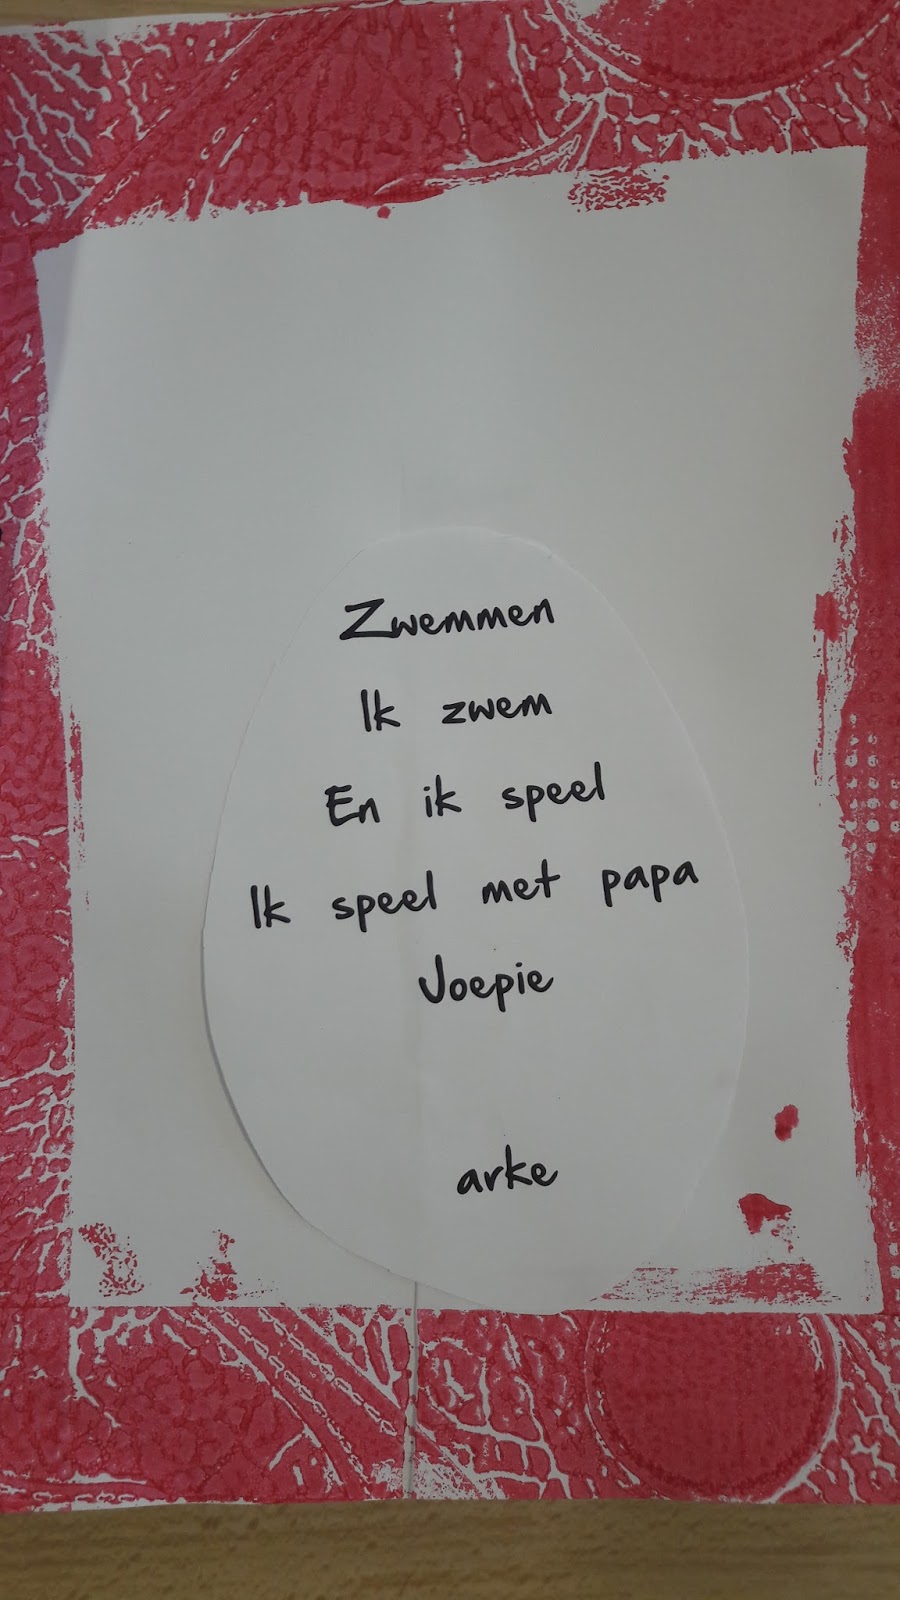 Zwemmen
Ik zwem
En ik speel
Ik speel met papa
Joepie
arke